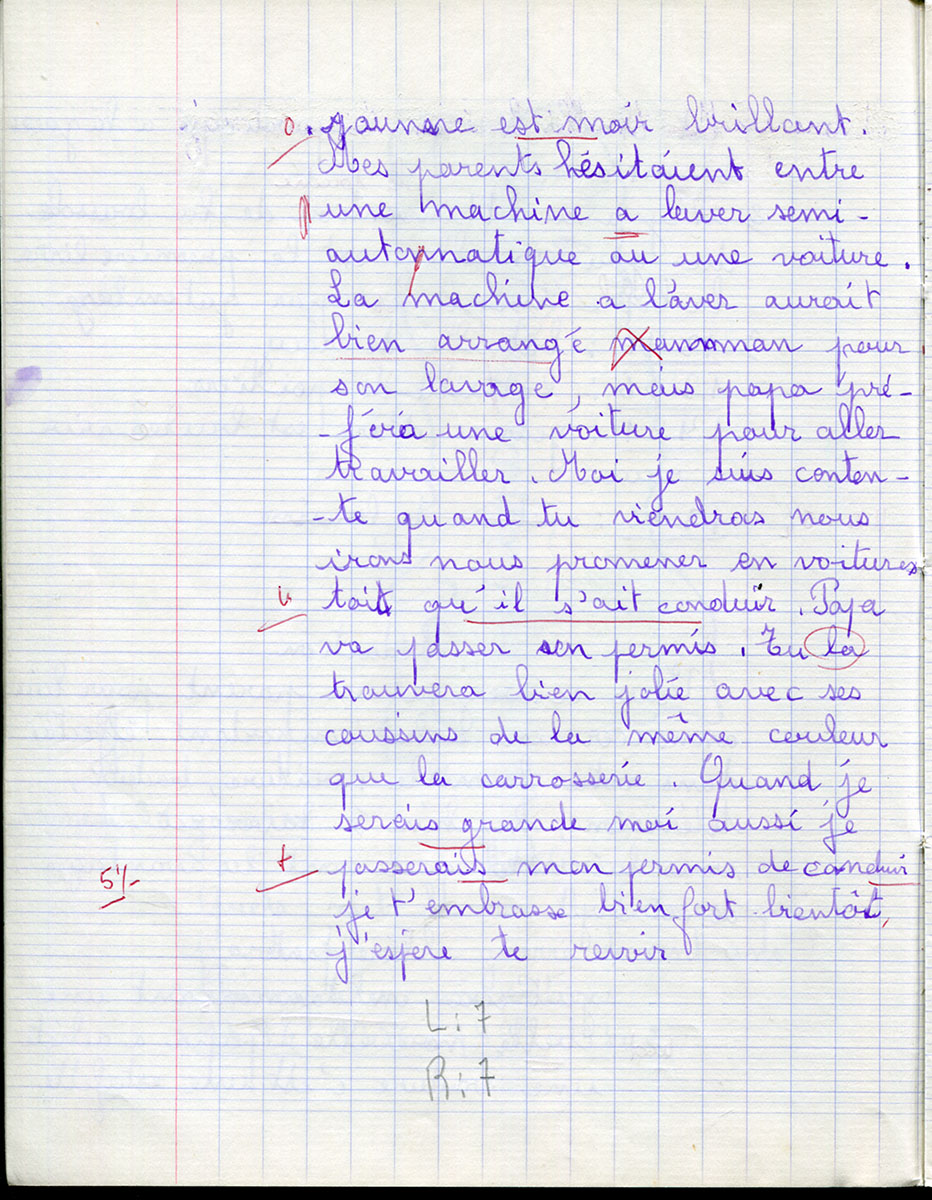 jaunne est moir brillant.
Mes parents hésitaient entre
une machine a laver semi-
automatique ou une voiture.
La machine a l'aver aurait
bien arrangé manman pour
son lavage, mais papa pré-
-féra une voiture pour aller
travailler. Moi je suis conten-
-te quand tu viendras nous
irons nous promener en voitures
qu'il s'ait conduir. Papa
va passer son permis. Tu la
trouvera bien jolie avec ses
coussins de la même couleur
que la carrosserie. Quand je
serais grande moi aussi je
passerais mon permis de conduir
je t'embrasse bien fort bientôt,
j'espere te revir
5
L:7
R:7